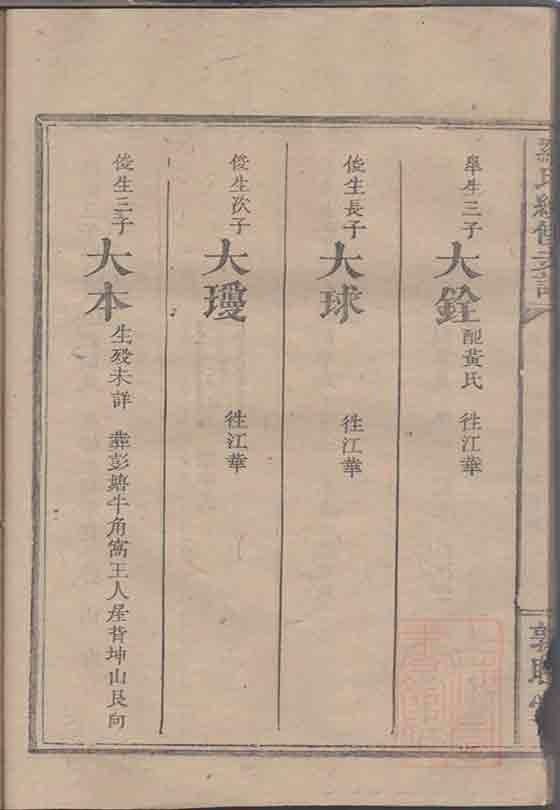 氏續修支譜
舉生三子 大銓 配黃氏 徃江華
俊生長子 大球 徃江華
俊生次子 大瓊 徃江華
俊生三子 大本 生殁未詳 葬彭塘牛角窩王人屋背坤山艮向